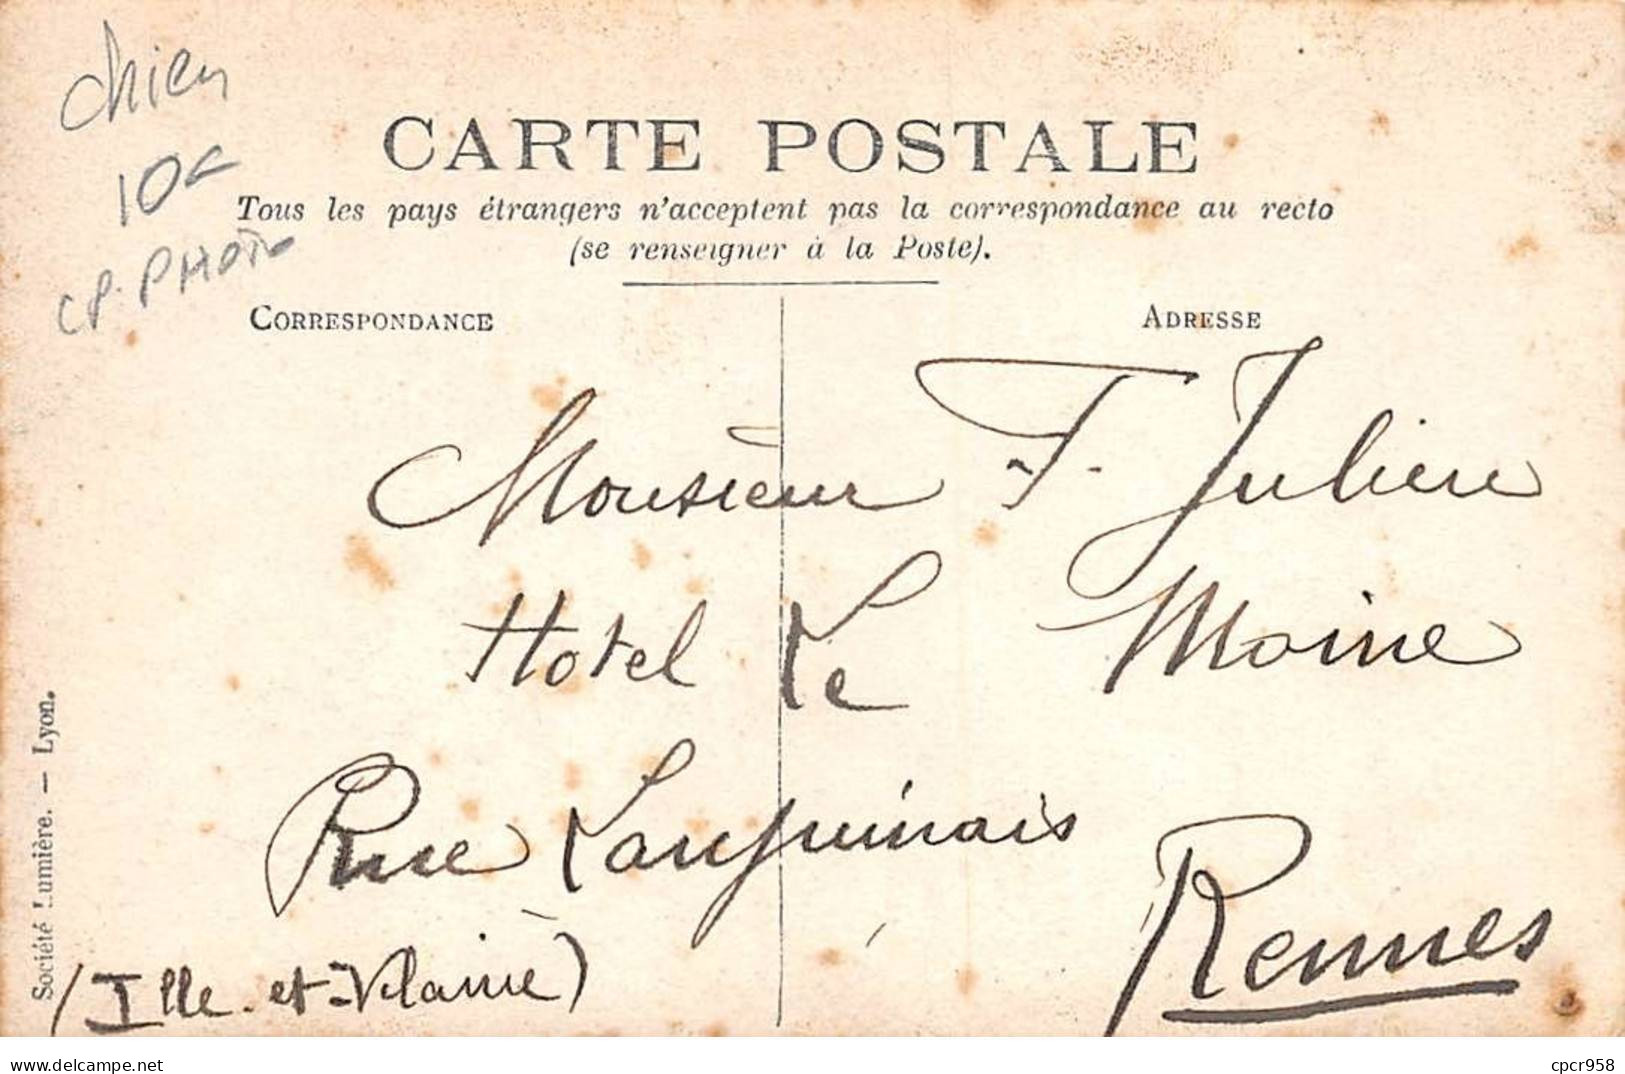 chien
10c
CP. PHOTO
CARTE POSTALE
Tous les pays étrangers n'acceptent pas la correspondance au recto
(se renseigner à la Poste).
CORRESPONDANCE
ADRESSE
Monsieur F. Julien
Hotel Le Moine
Rue Lanjuinais
Rennes
(Ille-et-Vilaine)
Société Lumière. — Lyon.
https://www.delcampe.net
cpcr958